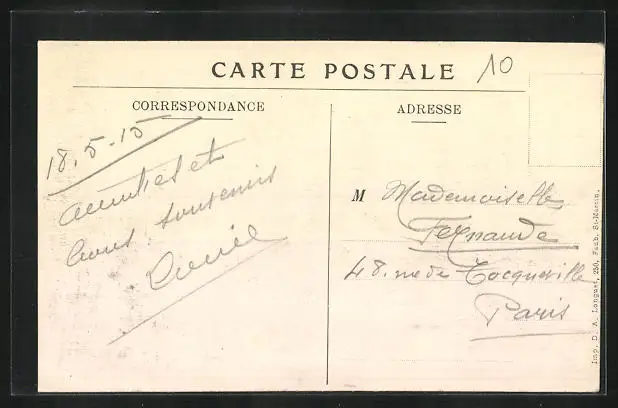 CARTE POSTALE
10
CORRESPONDANCE
ADRESSE
18.5-15
Amitiés et
bons souvenirs
M Mademoiselle
Fernande
48. rue de Tocqueville
Paris
Imp. D. A. Longuet, 250, Faub. St-Martin.